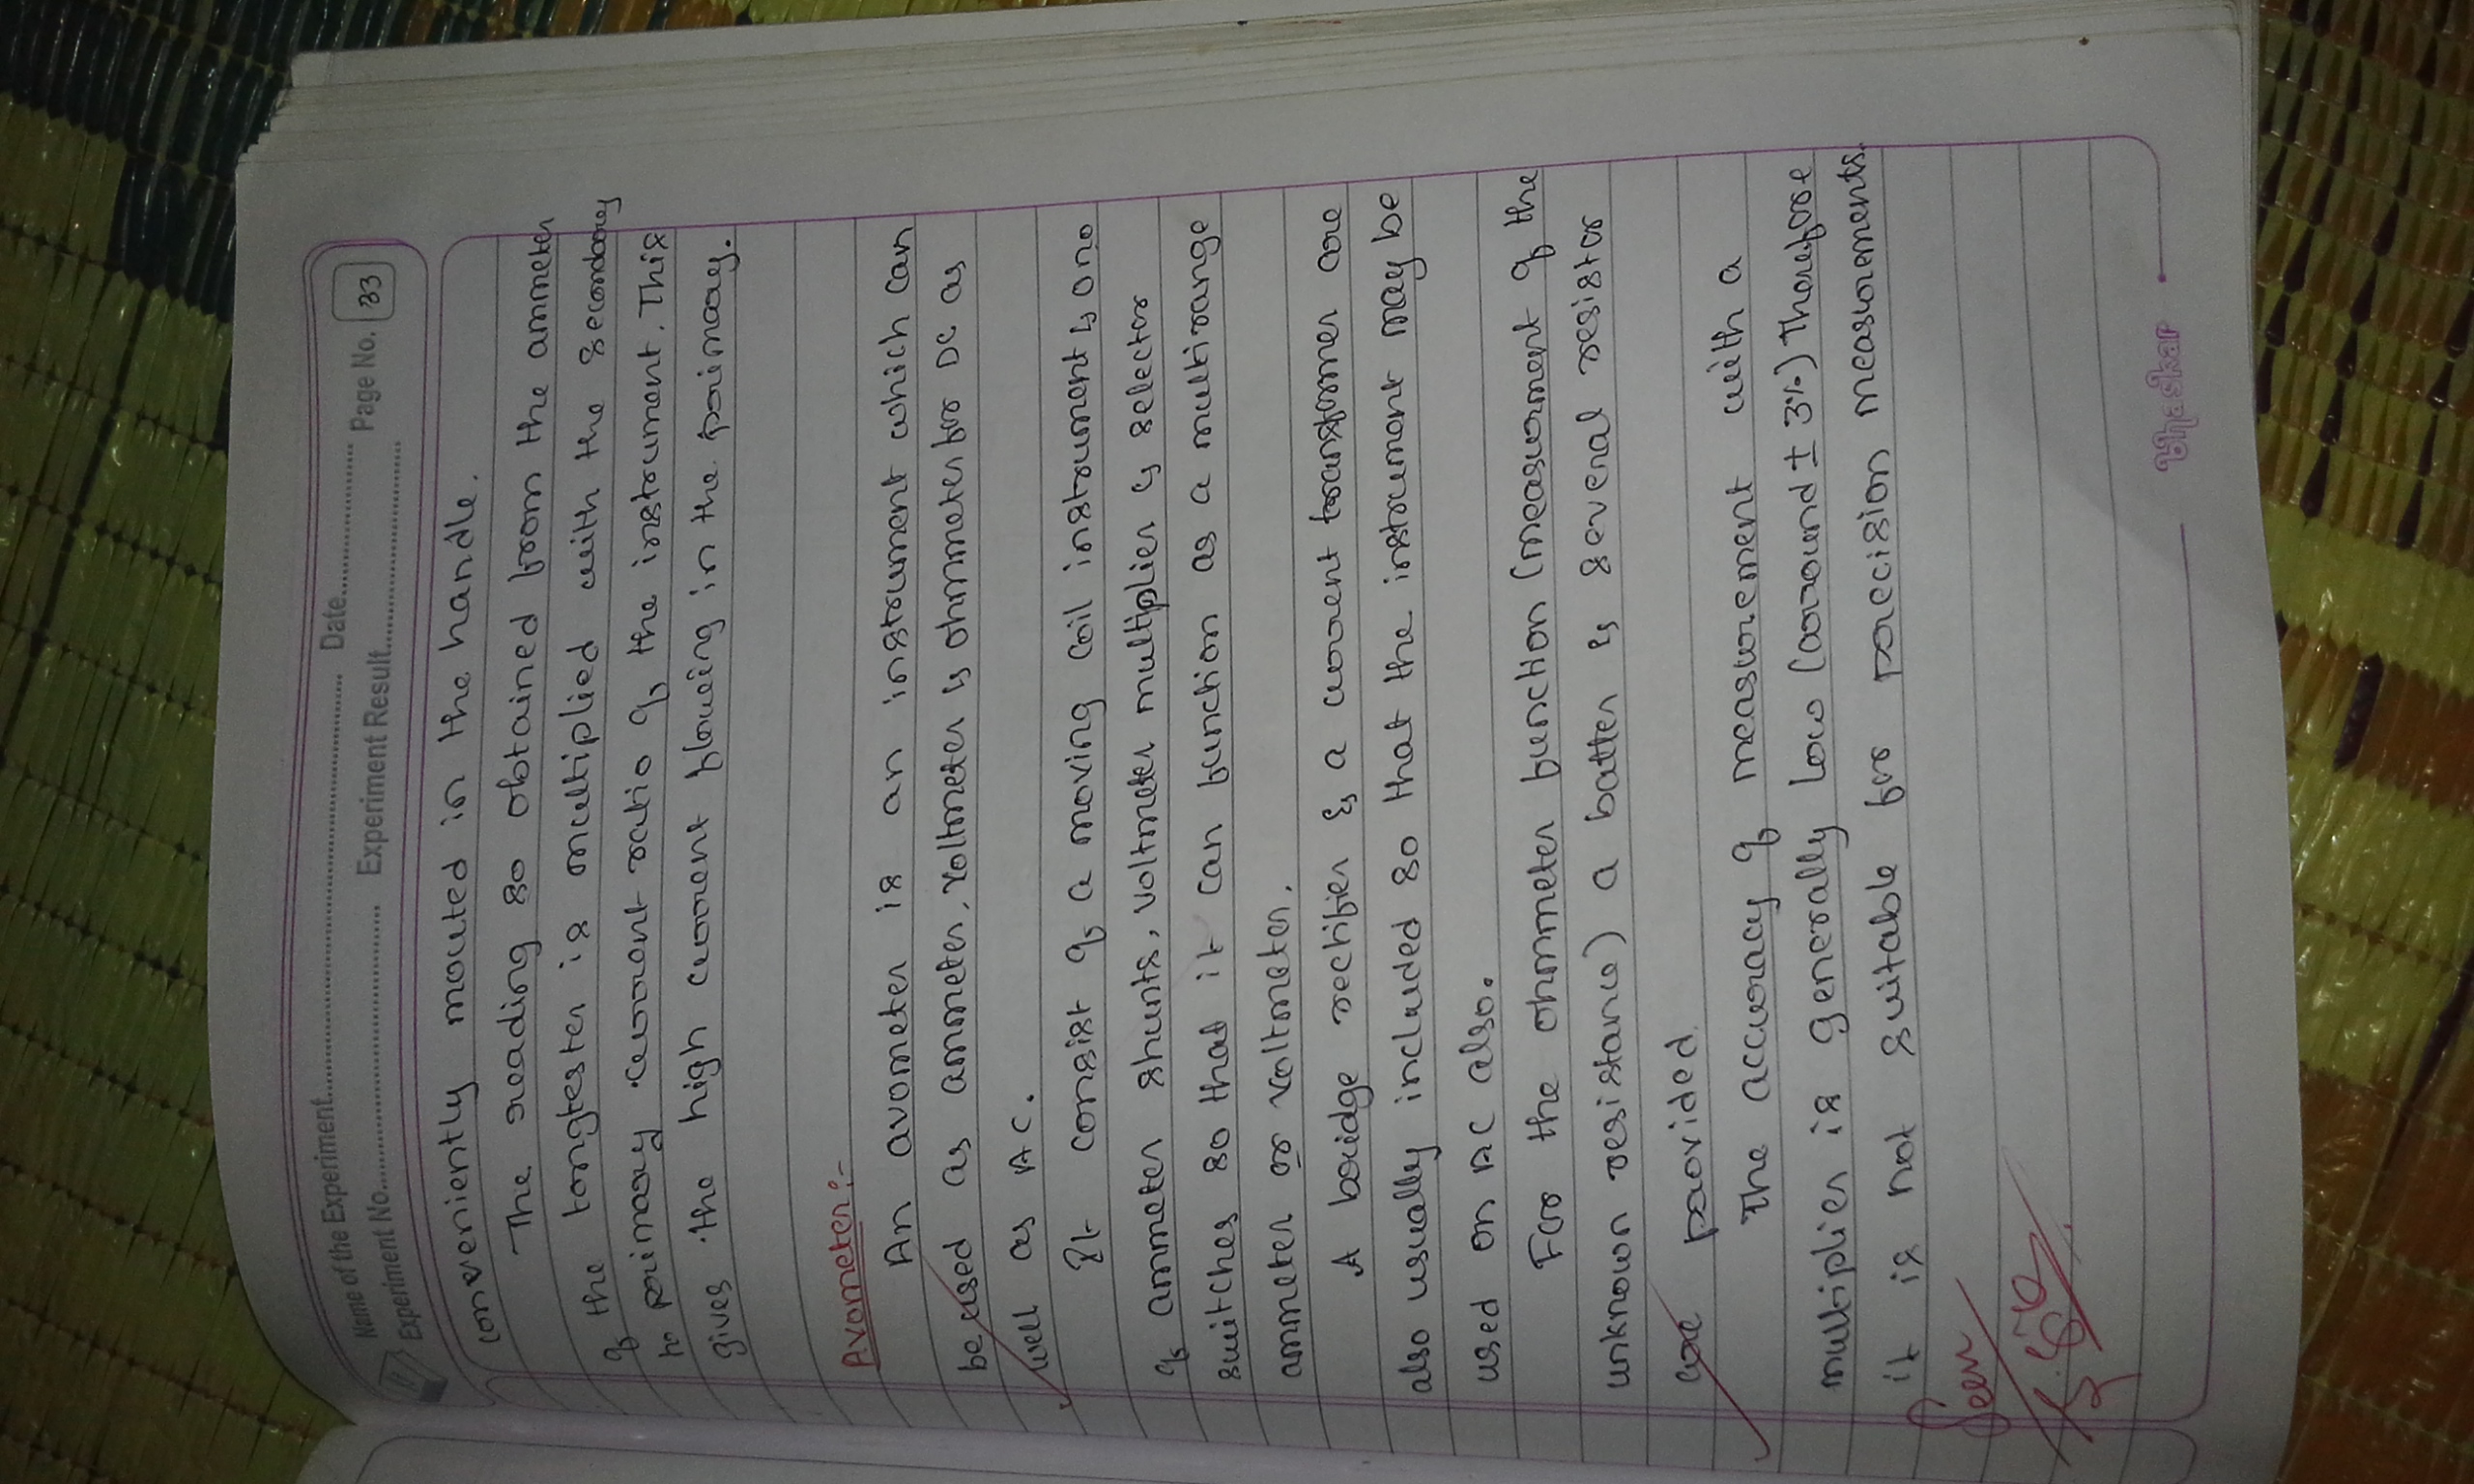 Name of the Experiment........ Date........ Page No. 33
Experiment No........ Experiment Result........
conveniently mouted in the handle.
The reading so obtained from the ammeter
of the tongtester is multiplied with the secondary
to primary current ratio of the instrument. This
gives the high current flowing in the primary.
Avometer:-
An avometer is an instrument which can
be used as ammeter, voltmeter & ohmmeter for DC as
well as AC.
It consist of a moving coil instrument & a no
of ammeter shunts, voltmeter multiplier & selector
switches so that it can function as a multirange
ammeter or voltmeter.
A bridge rectifier & a current transformer are
also usually included so that the instrument may be
used on AC also.
For the ohmmeter function (measurment of the
unknown resistance) a batter & several resistor
are provided
The accuracy of measurement with a
multiplier is generally low (around ± 3%) Therefore
it is not suitable for precision measurements.
Seen
Bhaskar